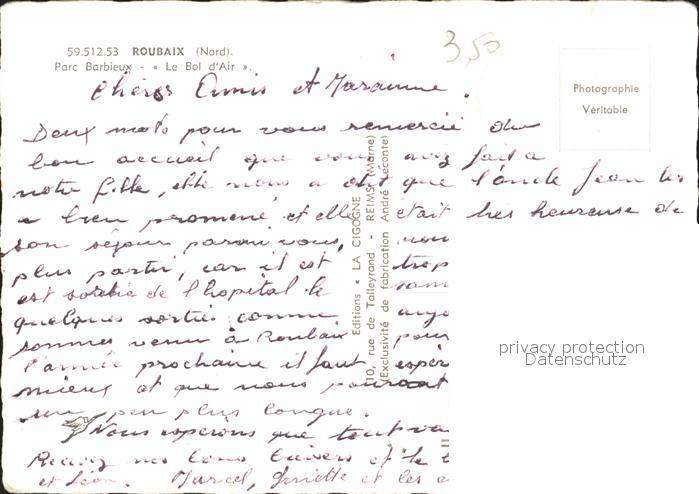 59.512.53 ROUBAIX (Nord).
Parc Barbieux - « Le Bol d'Air ».
3,50
Photographie
Véritable
Chères Amis et Marainne.
Deux mots pour vous remercié du
bon accueil que vous avez fait a
notre fille, elle nous a dit que l'oncle Jean les
a bien promené et elle était très heureuse de
son séjour parmi vous, nou
plus parti, car il est trop
est sortie de l'hopital le sam
quelques sorties comme aujo
sommes venu à Roubaix pour
l'année prochaine il faut espér
mieux et que nous pourront
un peu plus longue.
Nous espérons que tout va
Recevez nos bons baisers et le b
et Léon. Marcel, et les
Editions « LA CIGOGNE
10, rue de Talleyrand - REIMS (Marne)
(Exclusivité de fabrication André Leconte)
privacy protection
Datenschutz